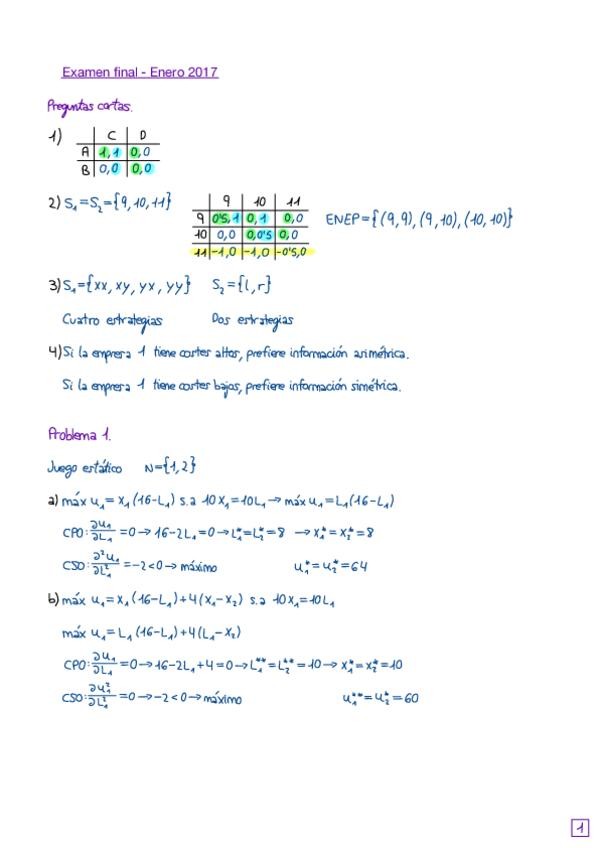 Examen final - Enero 2017
Preguntas cortas.
1)
C D
A 1,1 0,0
B 0,0 0,0
2) S₁=S₂={9,10,11}
9 10 11
9 0'5,1 0,1 0,0
10 0,0 0,0'5 0,0
11 -1,0 -1,0 -0'5,0
ENEP={(9,9),(9,10),(10,10)}
3) S₁={xx, xy, yx, yy} S₂={l,r}
Cuatro estrategias Dos estrategias
4) Si la empresa 1 tiene costes altos, prefiere información asimétrica.
Si la empresa 1 tiene costes bajos, prefiere información simétrica.
Problema 1.
Juego estático N={1,2}
a) máx u₁ = x₁(16-L₁) s.a 10x₁=10L₁ → máx u₁=L₁(16-L₁)
CPO: ∂u₁/∂L₁ =0→16-2L₁=0→L₁*=L₂*=8 → x₁*=x₂*=8
CSO: ∂²u₁/∂L₁² =-2<0→máximo u₁*=u₂*=64
b) máx u₁=x₁(16-L₁)+4(x₁-x₂) s.a 10x₁=10L₁
máx u₁=L₁(16-L₁)+4(L₁-x₂)
CPO: ∂u₁/∂L₁ =0→16-2L₁+4=0→L₁**=L₂**=10→x₁*=x₂*=10
CSO: ∂u₁²/∂L₁² =0→-2<0→máximo u₁**=u₂*=60
1